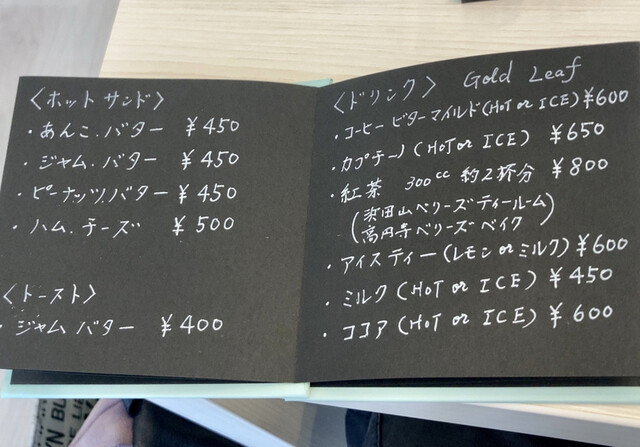 〈ホットサンド〉
・あんこ.バター ¥450
・ジャム.バター ¥450
・ピーナッツバター ¥450
・ハム.チーズ ¥500
〈トースト〉
・ジャムバター ¥400
〈ドリンク〉 Gold Leaf
・コーヒー ビターマイルド(HOT or ICE) ¥600
・カプチーノ(HOT or ICE) ¥650
・紅茶 300cc 約2杯分 ¥800
(浜田山ベリーズティールーム)
(高円寺ベリーズベイク)
・アイスティー(レモン or ミルク) ¥600
・ミルク(HOT or ICE) ¥450
・ココア(HOT or ICE) ¥600